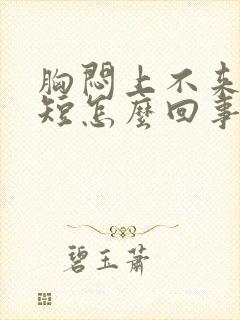 胸悶上不来
短怎麼回事
碧玉蕭